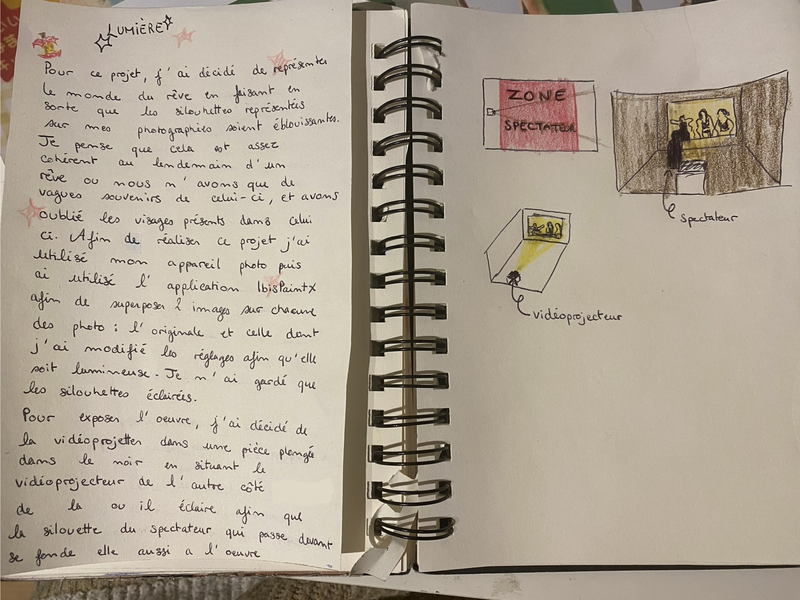 LUMIÈRE
Pour ce projet, j'ai décidé de représenter
le monde du rêve en faisant en
sorte que les silouhettes représentées
sur mes photographies soient éblouissantes.
Je pense que cela est assez
cohérent au lendemain d'un
rêve ou nous n'avons que de
vagues souvenirs de celui-ci, et avons
oublié les visages présents dans celui
ci. Afin de réaliser ce projet j'ai
utilisé mon appareil photo puis
ai utilisé l'application IbisPaintX
afin de superposer 2 images sur chacune
des photo : l'originale et celle dont
j'ai modifié les réglages afin qu'elle
soit lumineuse. Je n'ai gardé que
les silouhettes éclairées.
Pour exposer l'oeuvre, j'ai décidé de
la vidéoprojetter dans une pièce plongée
dans le noir en situant le
vidéoprojecteur de l'autre côté
de là ou il éclaire afin que
la silouette du spectateur qui passe devant
se fonde elle aussi a l'oeuvre
ZONE
SPECTATEUR
spectateur
vidéoprojecteur